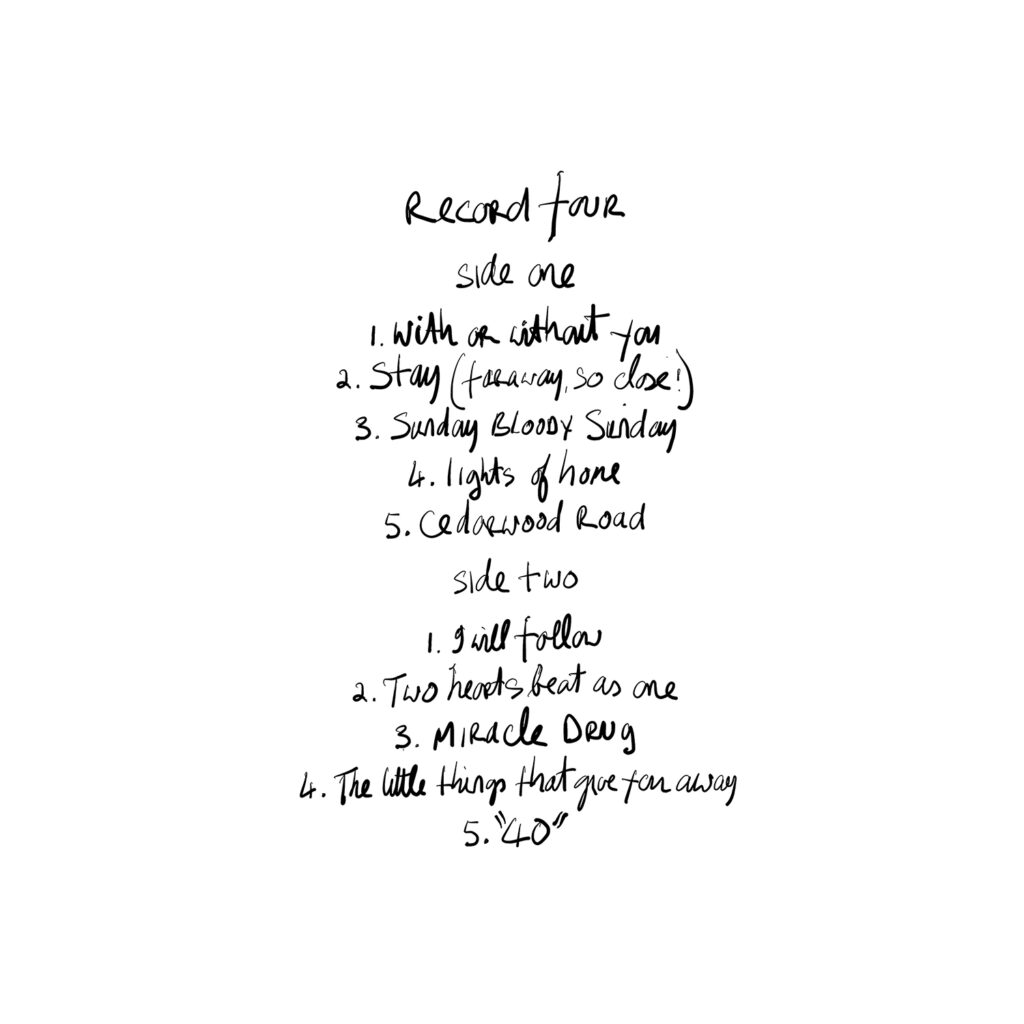 Record four
side one
1. With or without you
2. Stay (faraway, so close!)
3. Sunday BLOODY Sunday
4. lights of home
5. Cedarwood Road
side two
1. I will follow
2. Two hearts beat as one
3. MIRACLE DRUG
4. The little things that give you away
5. "40"